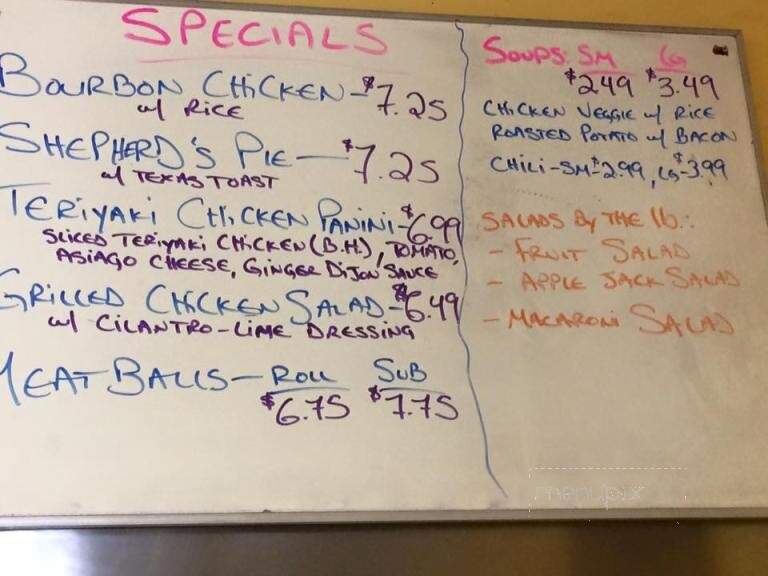 SPECIALS
BOURBON CHICKEN - $7.25
w/ RICE
SHEPHERD'S PIE — $7.25
w/ TEXAS TOAST
TERIYAKI CHICKEN PANINI - $6.99
SLICED TERIYAKI CHICKEN (B.H.), TOMATO,
ASIAGO CHEESE, GINGER DIJON SAUCE
GRILLED CHICKEN SALAD - $6.49
w/ CILANTRO-LIME DRESSING
MEATBALLS — ROLL SUB
$6.75 $7.75
SOUPS: SM LG
$2.49 $3.49
CHICKEN VEGGIE w/ RICE
ROASTED POTATO w/ BACON
CHILI - SM - $2.99, LG - $3.99
SALADS BY THE lb.:
- FRUIT SALAD
- APPLE JACK SALAD
- MACARONI SALAD
menupix